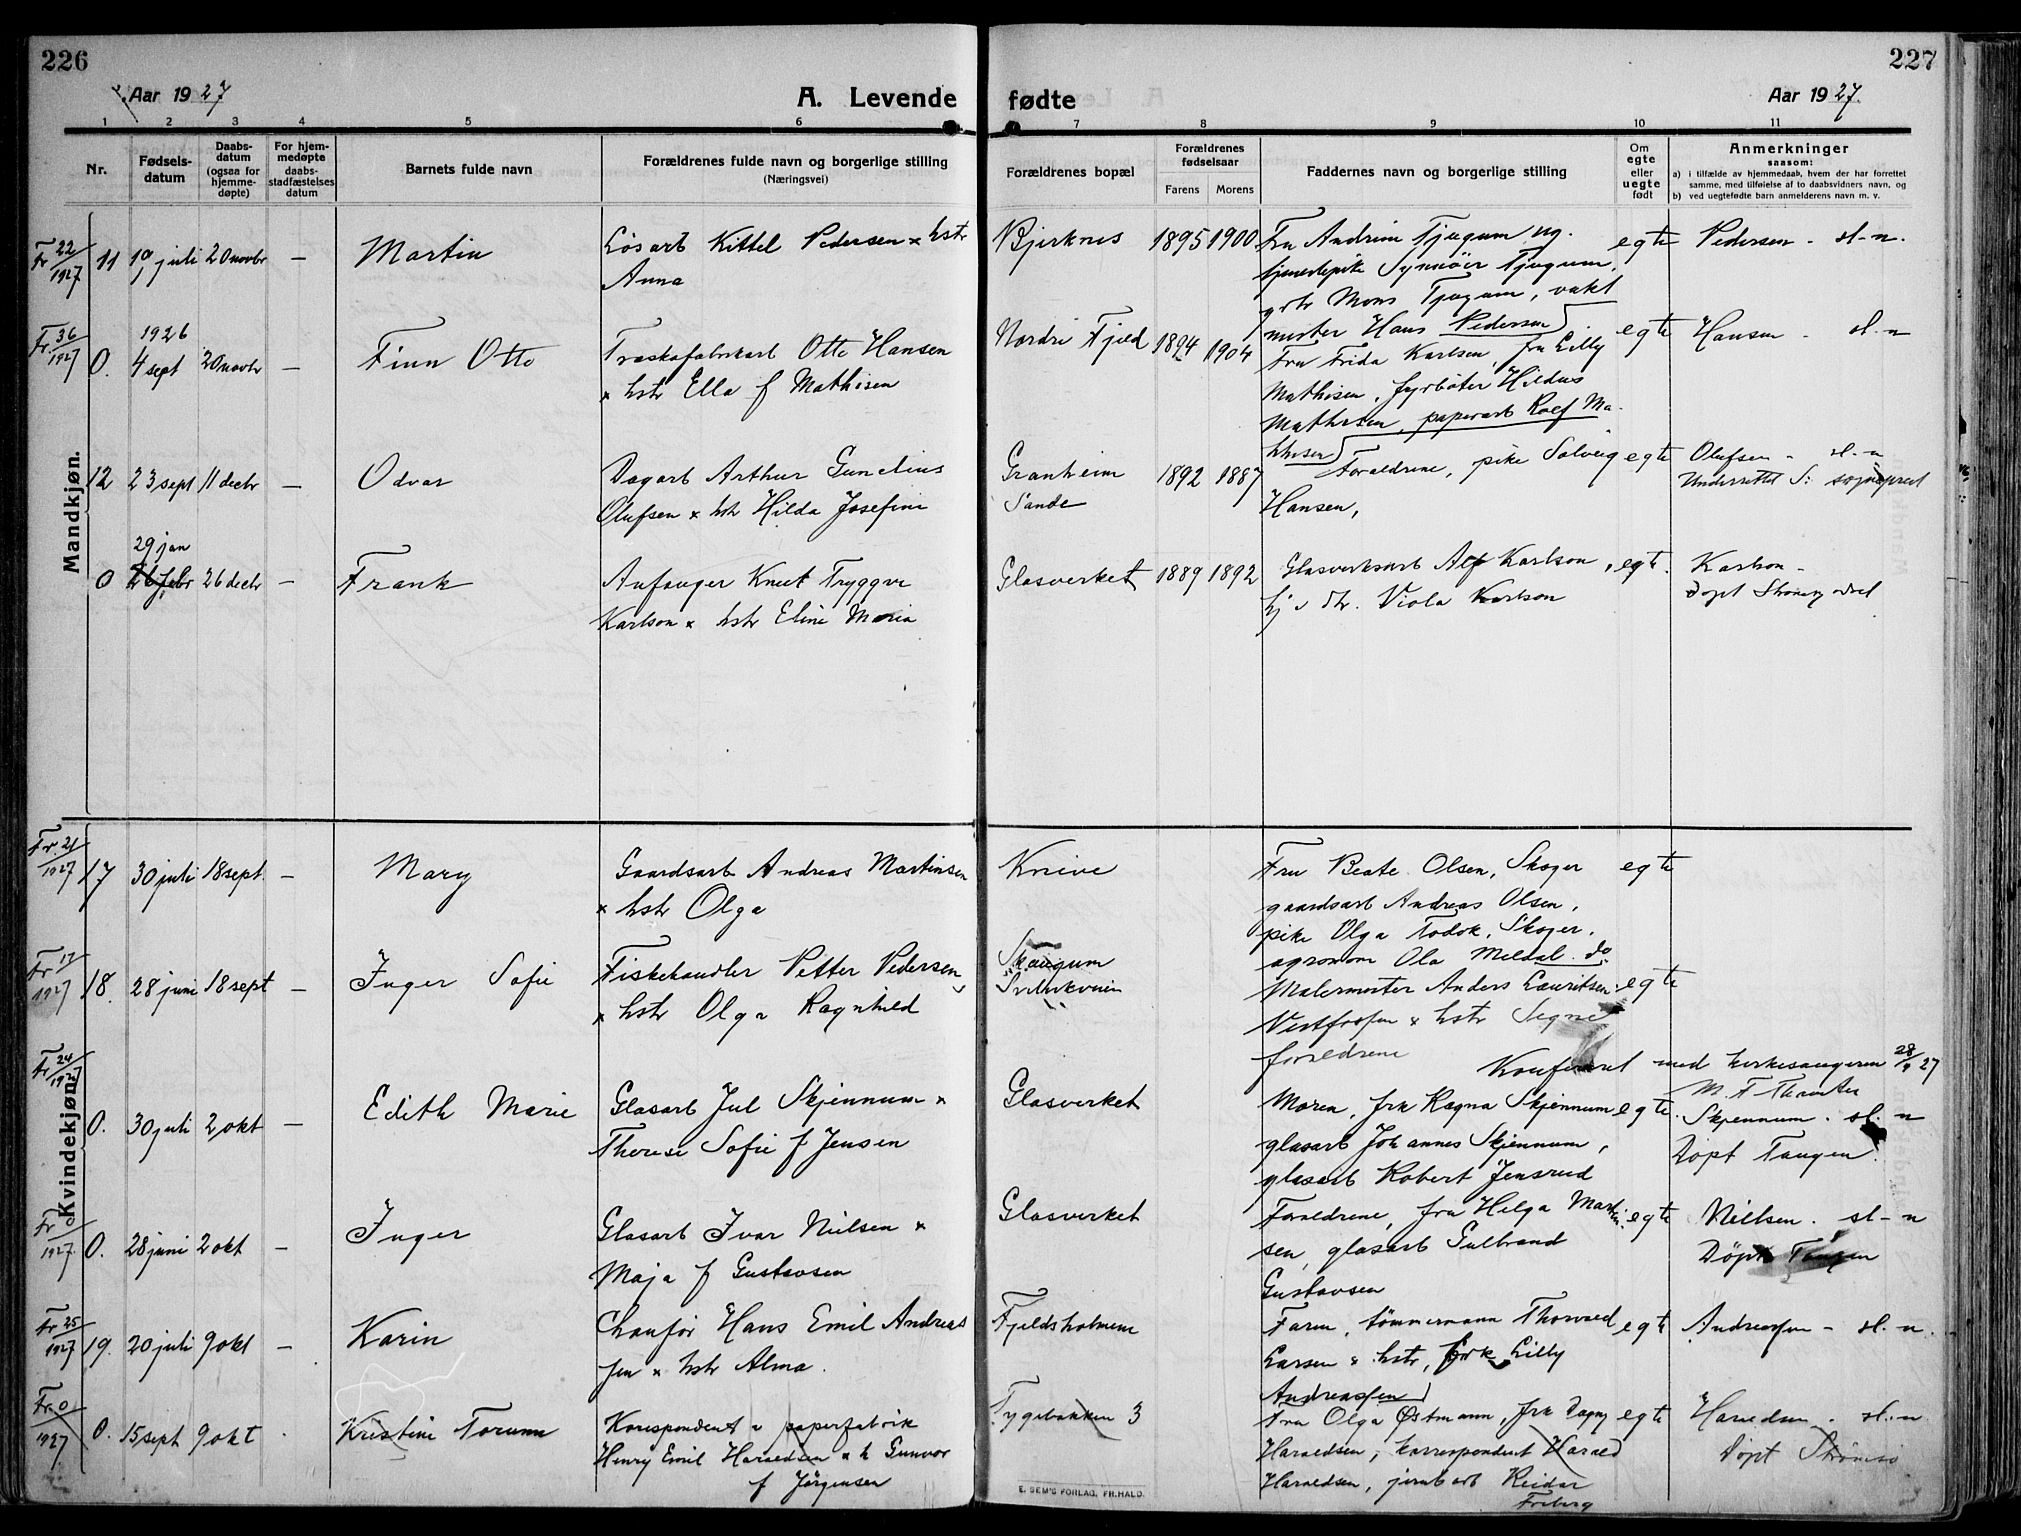 226
Aar 1927
A. Levende
fødte
Aar 1927.
227
1 2 3 4 5 6 7 8 9 10 11
Nr.
Fødsels-
datum
Daabs-
datum
(ogsaa for
hjemme-
døpte)
For hjem-
medøpte
daabs-
stadfæstelses
datum
Barnets fulde navn
Forældrenes fulde navn og borgerlige stilling
(Næringsvei)
Forældrenes bopæl
Forældrenes
fødselsaar
Farens Morens
Faddernes navn og borgerlige stilling
Om
egte
eller
uegte
født
Anmerkninger
saasom:
a) i tilfælde av hjemmedaab, hvem der har forrettet
samme, med tilføielse af to daabsvidners navn, og
b) ved uegtefødte barn anmelderens navn m. v.
Mandkjøn.
Fr 22/1927
11 19 juli 20 novbr —
Martin
Løsarb Kittel Pedersen × hstr
Anna
Bjerknes 1895 1900
Fru Andrine Tjugum ug.
tjenestepike Synnöve Tjugum,
grbr Mons Tjugum, vakt
mester Hans Pedersen
egte
Pedersen - sl-n.
Fr 36/1927
1926
0. 4 sept 20 novbr —
Finn Otto
Træskofabrikarb Otto Hansen
× hstr Ella f Mathisen
Nordre Fjeld 1894 1904
Fru Frida Karlsen, fru Lilly
Mathisen, fyrbøter Hildus
Mathisen, paperarb Rolf Ma-
thisen
egte
Hansen - sl-n
12 23 sept 11 decbr —
Odvar
Dagarb Arthur Gunelius
Olufsen × hstr Hilda Josefine
Granheim
Sande
1892 1887
Forældrene, pike Solveig
Hansen,
egte
Olufsen - sl-n
Underrettet S: sogneprest
29 jan
0 26 febr 26 decbr —
Frank
Anfanger Knut Tryggve
Karlson × hstr Eline Maria
Glasverket 1889 1892
Glasverksarb Alf Karlson,
hj v dtr. Viola Karlson
egt.
Karlson -
døpt
Kvindekjøn.
Fr. 21/1927
17 30 juli 18 sept. —
Mary
Gaardsarb Andreas Martinsen
× hstr Olga
Knive
Fru Beate Olsen, Skoger
gaardsarb Andreas Olsen,
pike Olga Fodok, Skoger.
agronom Ola Meldal. do
egte
Fr 17/1927
18. 28 juni 18 sept —
Inger Sofie
Fiskehandler Petter Pedersen
× hstr Olga Ragnhild
Skaugum
Svelvikveien
Malermester Anders Lauritsen
Vestfossen × hstr Signe
forældrene
egte
Konferert med kirkesangeren 28/9 27
Fr 24/1927
0. 30 juli 2 okt —
Edith Marie
Glasarb Jul Skjennum ×
Therese Sofie f Jensen
Glasverket
Moren, frk Ragna Skjennum
glasarb Johannes Skjennum,
glasarb Robert Jensrud
egte.
Skjennum. sl-n
Døpt Tangen.
Fr /1927
0. 28 juni 2 okt —
Inger
Glasarb Ivar Nielsen ×
Maja f Gustavsen
Glasverket
Forældrene, fru Helga Martin-
sen, glasarb Gulbrand
Gustavsen
egte
Nielsen. sl-n
Døpt Tangen
Fr 25/1927
19. 20 juli 9 okt —
Karin
Chauför Hans Emil Andreas
sen × hstr Alma.
Fjeldsholmene
Faren, tømmermann Thorvald
Larsen × hstr, frk Lilly
Andreassen
egte
Andreassen - sl.-n.
Fr. 0/1927
0. 15 sept 9 okt
Kristine Torunn
Korespondent v paperfabrik
Henry Emil Haraldsen × h Gunvor
f Jørgensen
Tygebakken 3
Fru Olga Østmann, frk Dagny
Haraldsen, korrespondent Harald
Haraldsen, jernbarb Reidar
Freberg
egte
Haraldsen. sl.-n.
Døpt Strømsø
E. SEM'S FORLAG, FR.HALD.